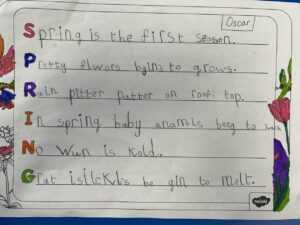 Oscar
Spring is the first season.
Pretty flwors bgins to grows.
Rain pitter patter on roof top.
In spring baby anamls beeg to hach
No Wun is kold.
Grat isilckls be gin to melt.
twinkl